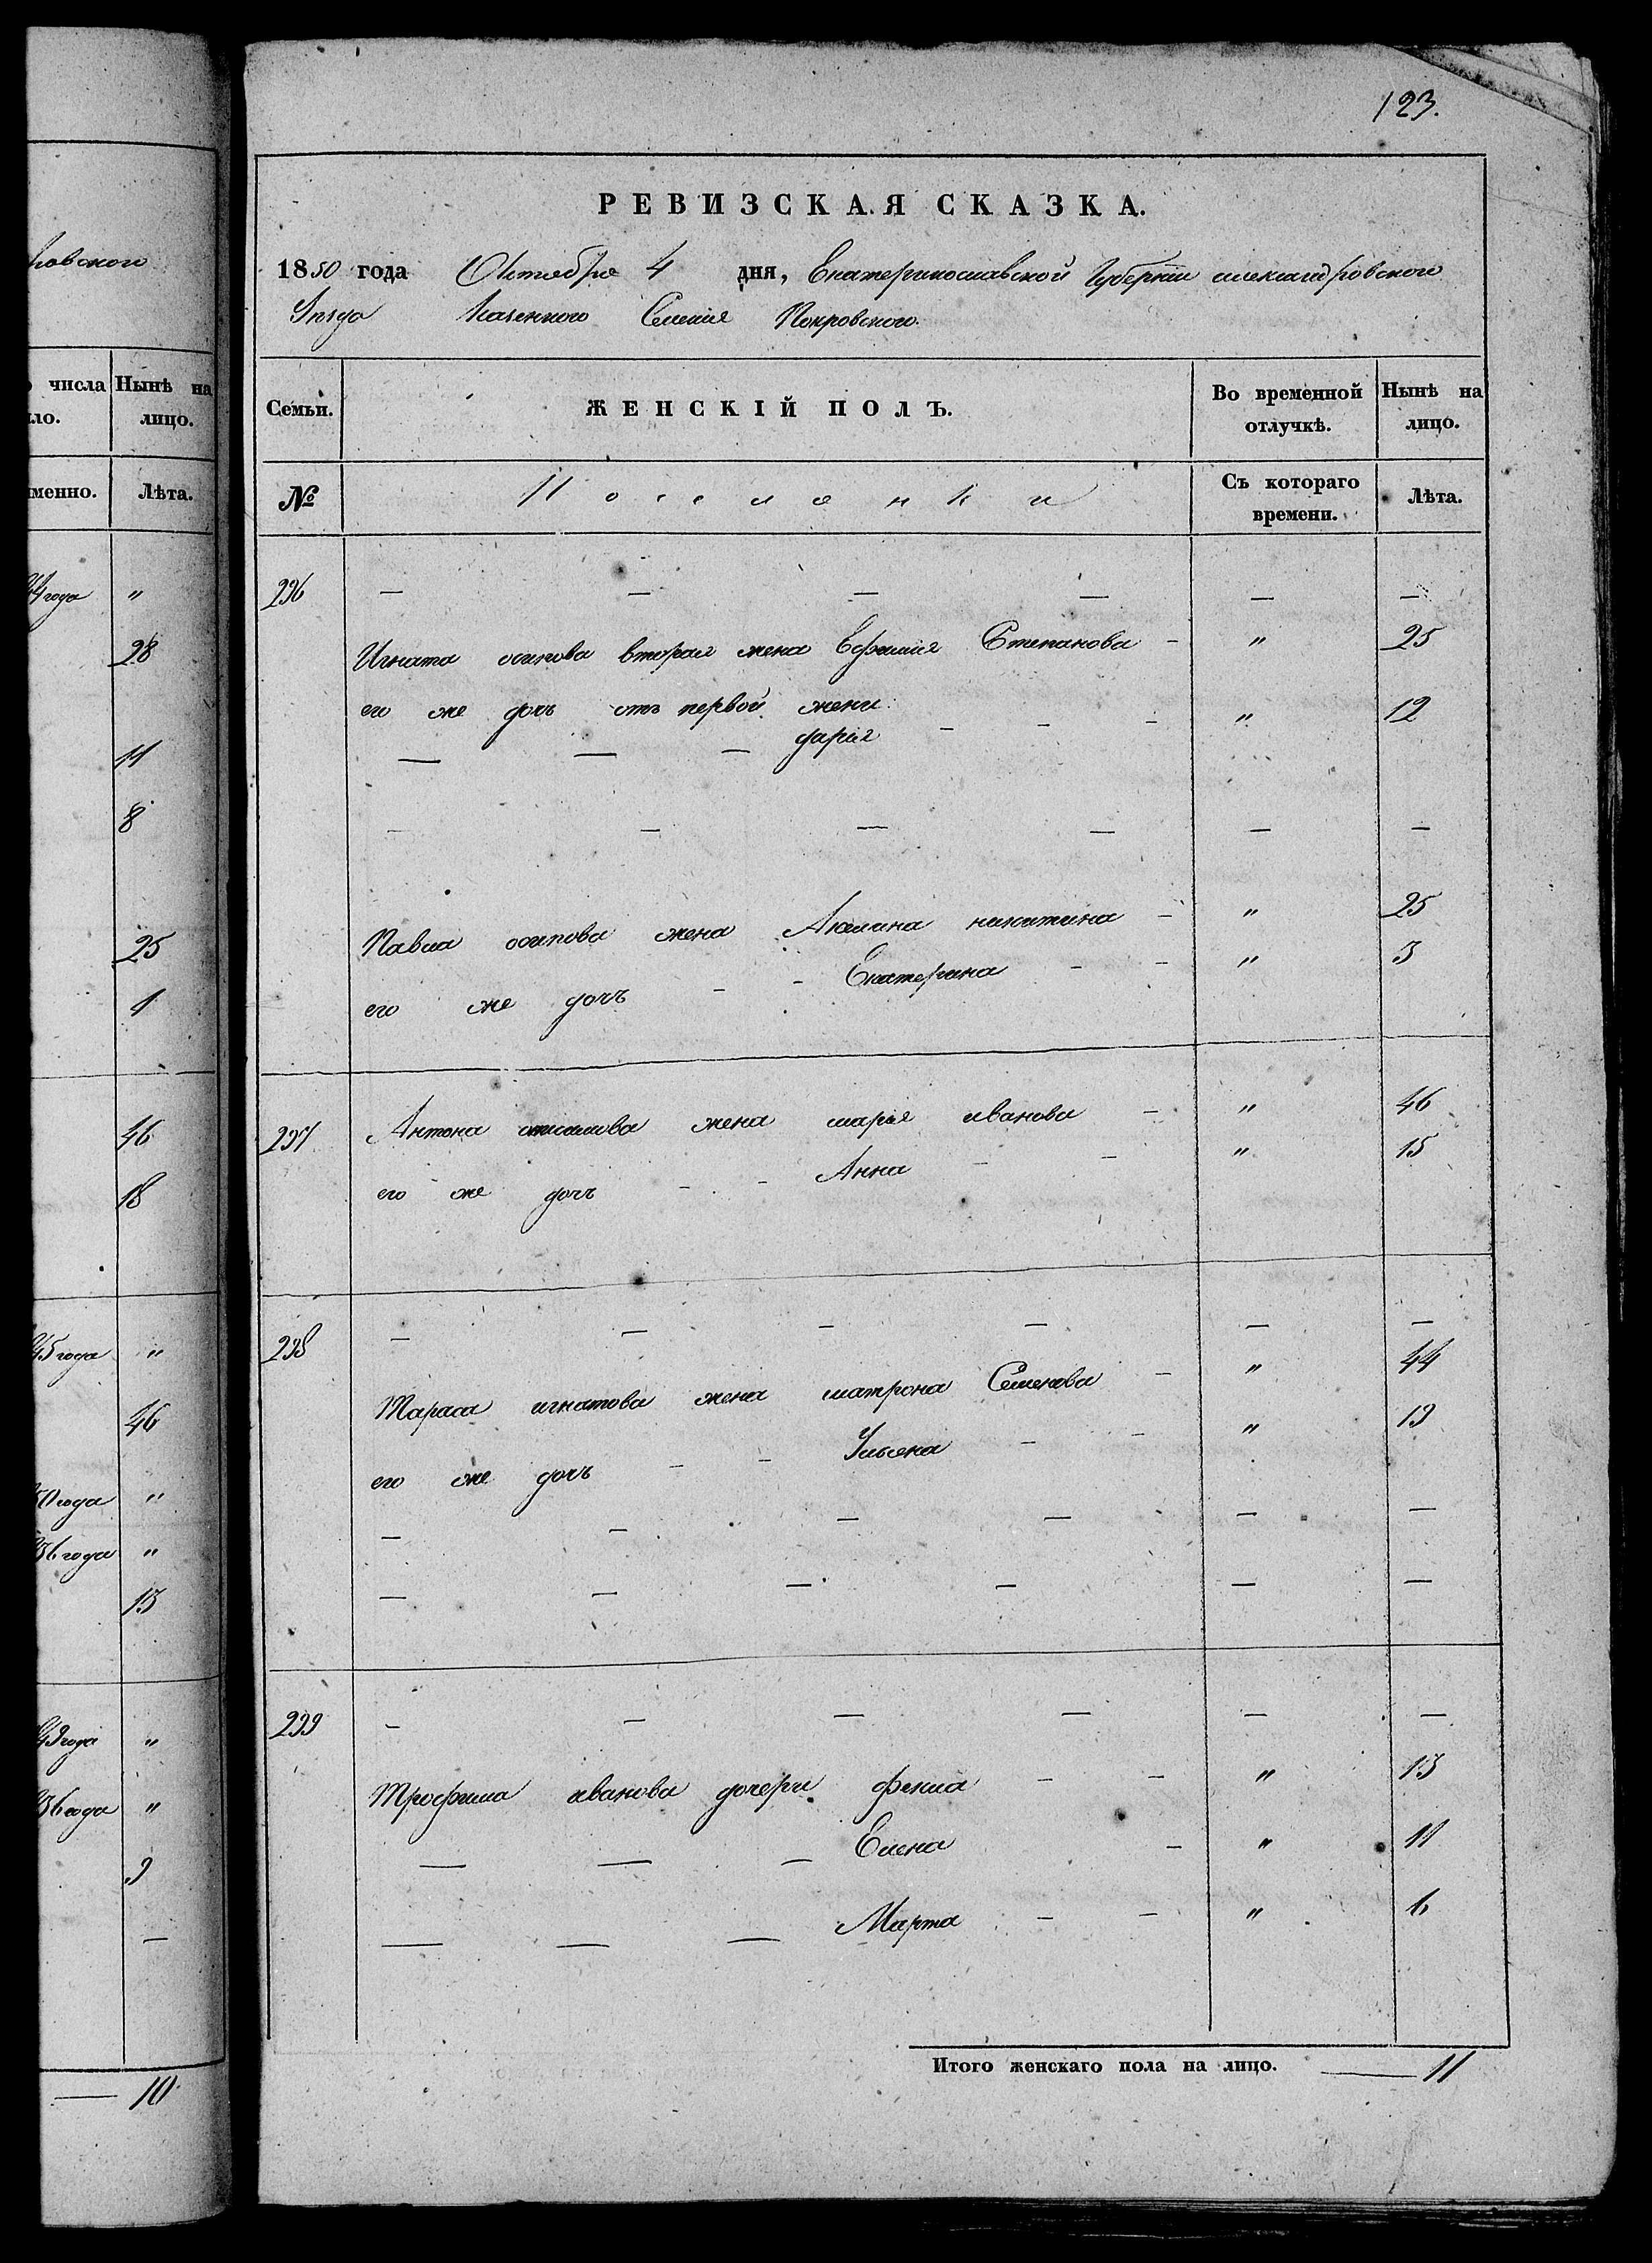 ховского
числа Нынѣ на
ло. лицо.
менно. Лѣта.
44 года "
28
11
8
25
1
46
18
45 года "
46
50 года "
36 года "
13
49 года "
36 года "
9
—
— 10
123.
РЕВИЗСКАЯ СКАЗКА.
1850 года Октября 4 дня, Екатеринославской Губернии александровского
Казенного Селения Покровского.
Семьи. ЖЕНСКІЙ ПОЛЪ. Во временной отлучкѣ. Нынѣ на лицо.
№ Поселянки Съ котораго времени. Лѣта.
296 — — — — — —
Игната осипова вторая жена Ефимия Степанова - " 25
его же дочь отъ первой жени
— — — дария - - - " 12
- — — — — —
Павла осипова жена Акилина никитина - " 25
его же дочь - - Екатерина - - " 3
297 Антона жена мария иванова - " 46
его же дочь - - Анна - - " 15
298 — — — — — —
Тараса игнатова жена матрона Семенова - " 44
его же дочь - - Ульяна - - " 19
— — — — — —
— — — — — —
299 — — — — — —
Трофима иванова дочери - - " 13
— — — Елена - " 11
— — — Марта - - " 6
Итого женскаго пола на лицо. — 11